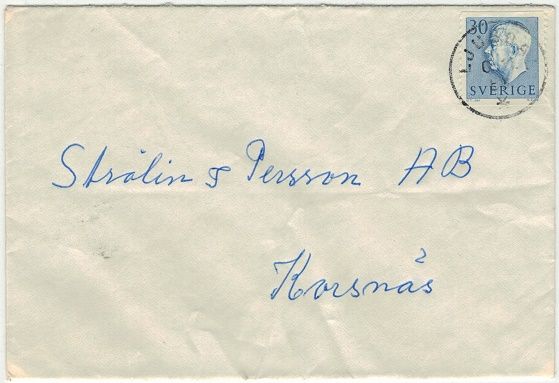 30
SVERIGE
Strålin & Persson AB
Korsnäs